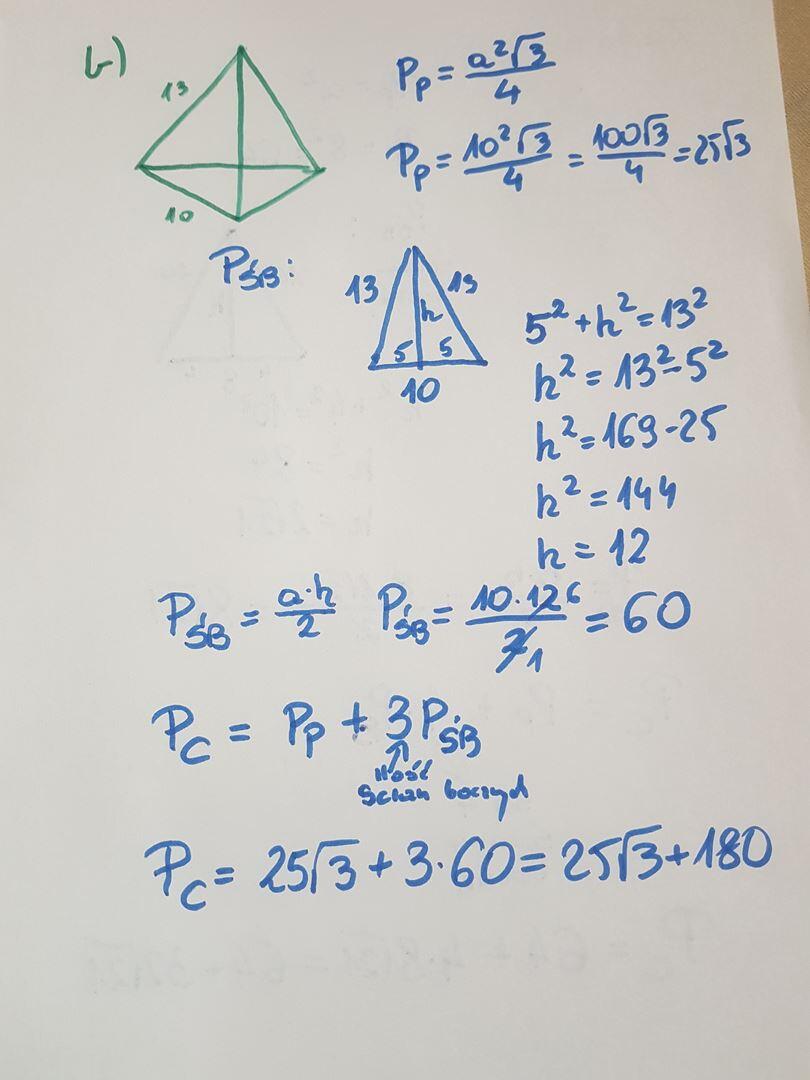 b)
13
10
Pp = a²√3/4
Pp = 10²√3/4 = 100√3/4 = 25√3
PŚB:
13 13
h
5 5
10
5² + h² = 13²
h² = 13² - 5²
h² = 169 - 25
h² = 144
h = 12
PŚB = a·h/2 PŚB = 10·12 6/2 1 = 60
PC = Pp + 3PŚB
ilość
ścian bocznych
PC = 25√3 + 3·60 = 25√3 + 180